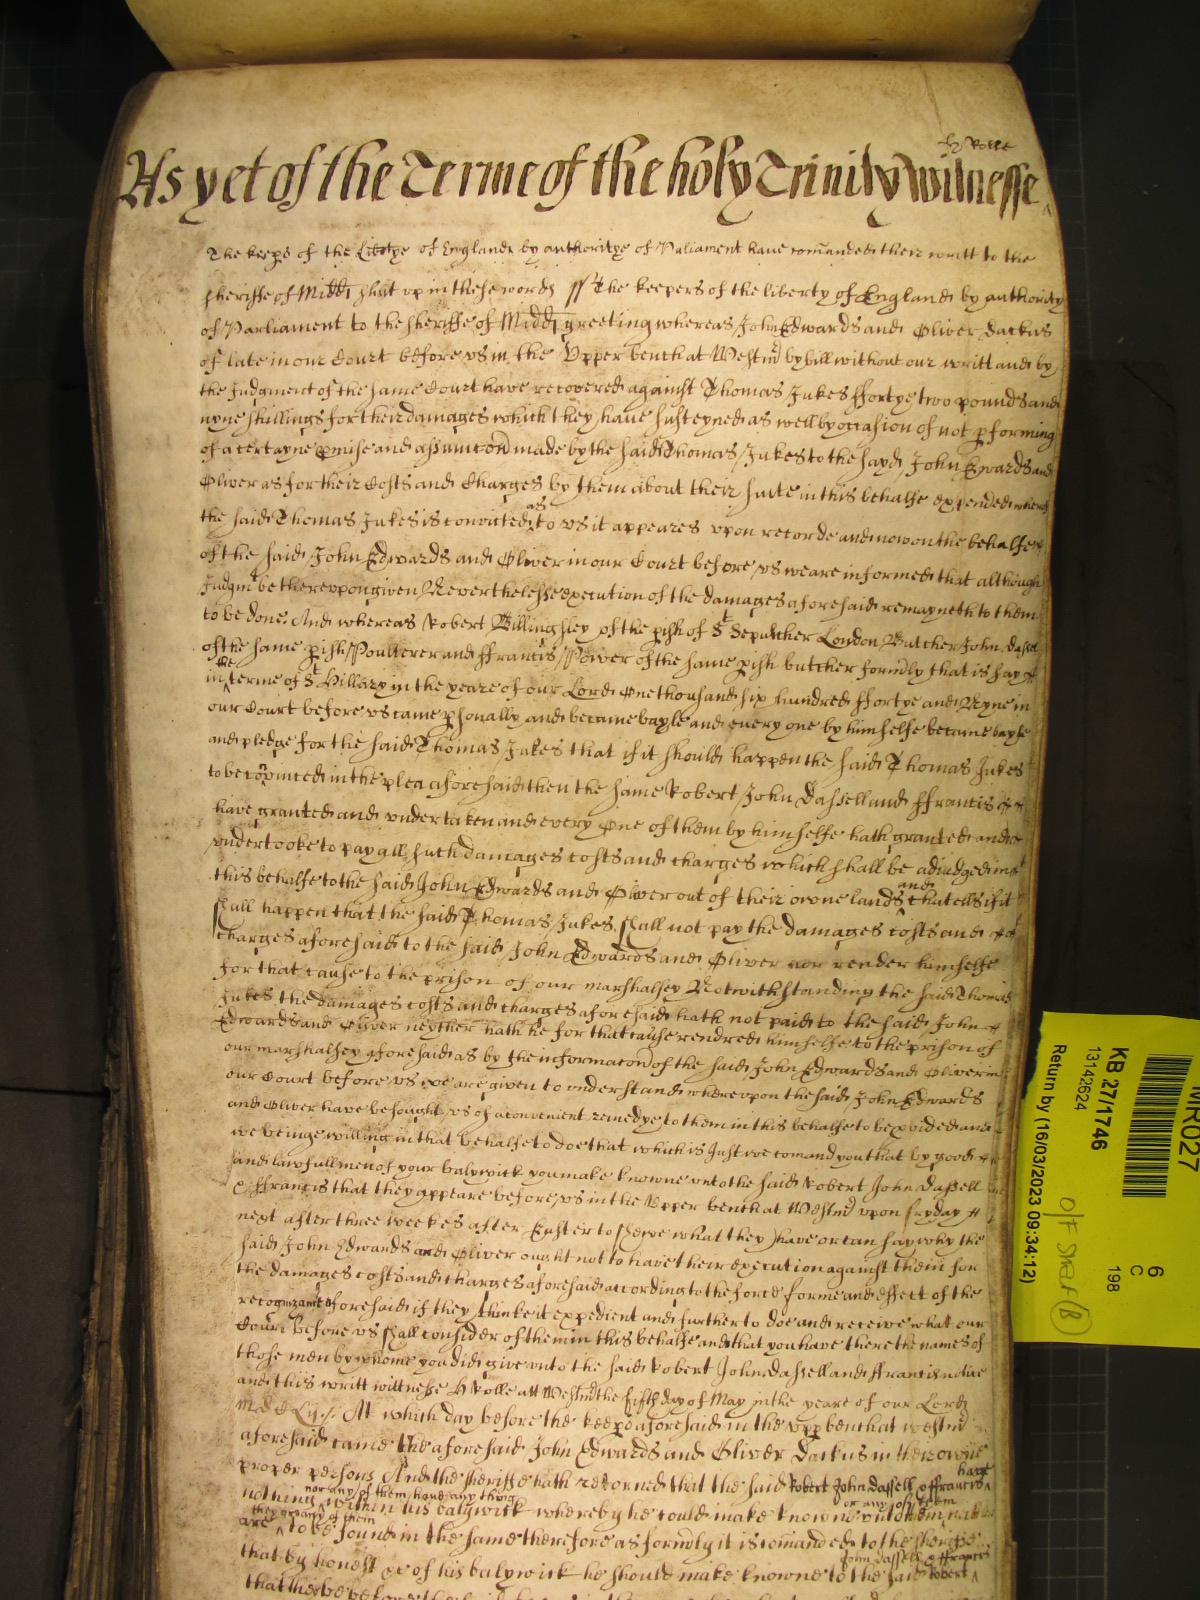 As yet of the Terme of the holy Trinity Witnesse
H Rolle
The keeps of the Libtye of England by authoritye of Parliament have comanded their writt to the
sheriffe of Midd shut up in these words ss The keepers of the liberty of England by authority
of Parliament to the sheriffe of Midd greeting whereas John Edwards and Oliver Dackus
of late in our Court before us in the Upper bench at Westm by bill without our writt and by
the Judgment of the same Court have recovered against Thomas Jukes ffortye two pounds and
nyne shillings for their damages which they have susteyned as well by occasion of not pforming
of a certayne pmise and assumcon made by the said Thomas Jukes to the sayd John Edwards and
Oliver as for their Costs and Charges by them about their suite in this behalfe expended whereof
the said Thomas Jukes is convicted as to us it appeares upon recorde and now on the behalfe
of the said John Edwards and Oliver in our Court before us we are informed that although
Judgmt be thereupon given Neverthelesse execution of the damages aforesaid remayneth to them
to be done. And whereas Robert Billingsley of the pish of St Sepulcher London Butcher John Dassell
of the same pish Poulterer and ffrancis Power of the same pish butcher formly that is say
in the terme of St Hillary in the yeare of our Lord One thousand six hundred ffortye and Nyne in
our Court before us came psonally and became bayle and every one by himselfe became bayle
and pledge for the said Thomas Jukes that if it should happen the said Thomas Jukes
to be convicted in the plea aforesaid then the same Robert John Dassell and ffrancis
have granted and undertaken and every One of them by himselfe hath granted and
undertooke to pay all such damages costs and charges which shall be adiudged in
this behalfe to the said John Edwards and Oliver out of their owne lands and chattells if it
shall happen that the said Thomas Jukes shall not pay the damages costs and
charges aforesaid to the said John Edwards and Oliver nor render himselfe
for that cause to the prison of our marshalsey Notwithstanding the said Thomas
Jukes the damages costs and charges aforesaid hath not paid to the said John
Edwards and Oliver neyther hath he for that cause rendred himselfe to the prison of
our marshalsey aforesaid as by the informacon of the said John Edwards and Oliver in
our Court before us we are given to understand whereupon the said John Edwards
and Oliver have besought us of a convenient remedye to them in this behalfe to be pvided and
we beinge willing in that behalfe to doe that which is Just we comand you that by good
and lawfull men of your balywick you make knowne unto the said Robert John Dassell
& ffrancis that they appeare before us in the Upper bench at Westm upon fryday
next after three weekes after Easter to shewe what they have or can say why the
said John Edwards and Oliver ought not to have their execution against them for
the damages costs and charges aforesaid according to the force forme and effect of the
recognizance aforesaid if they thinke it expedient and further to doe and receive what our
Court before us shall consider of them in this behalfe and that you have there the names of
those men by whome you did give unto the said Robert John Dassell and ffrancis notice
and this writt wittnesse H Rolle att Westm the fifth day of May in the yeare of our Lord
MDCLij At which day before the keeps aforesaid in the upp bench at westm
aforesaid came the aforesaid John Edwards and Oliver Dackus in their owne
proper persons And the sheriffe hath retorned that the said Robert John Dassell & ffrancis have
nothing nor any of them have any thing within his balywick whereby he could make knowne unto them or any of them
are they or any of them to be found in the same therefore as formly it is comanded to the sheriffe
that by honest &c of his balywick he should make knowne to the said Robert John Dassell & ffrancis
that they be before the
MR027
KB 27/1746
13142624
Return by (16/03/2023 09:34:12)
6
C
198
O/F Shelf B